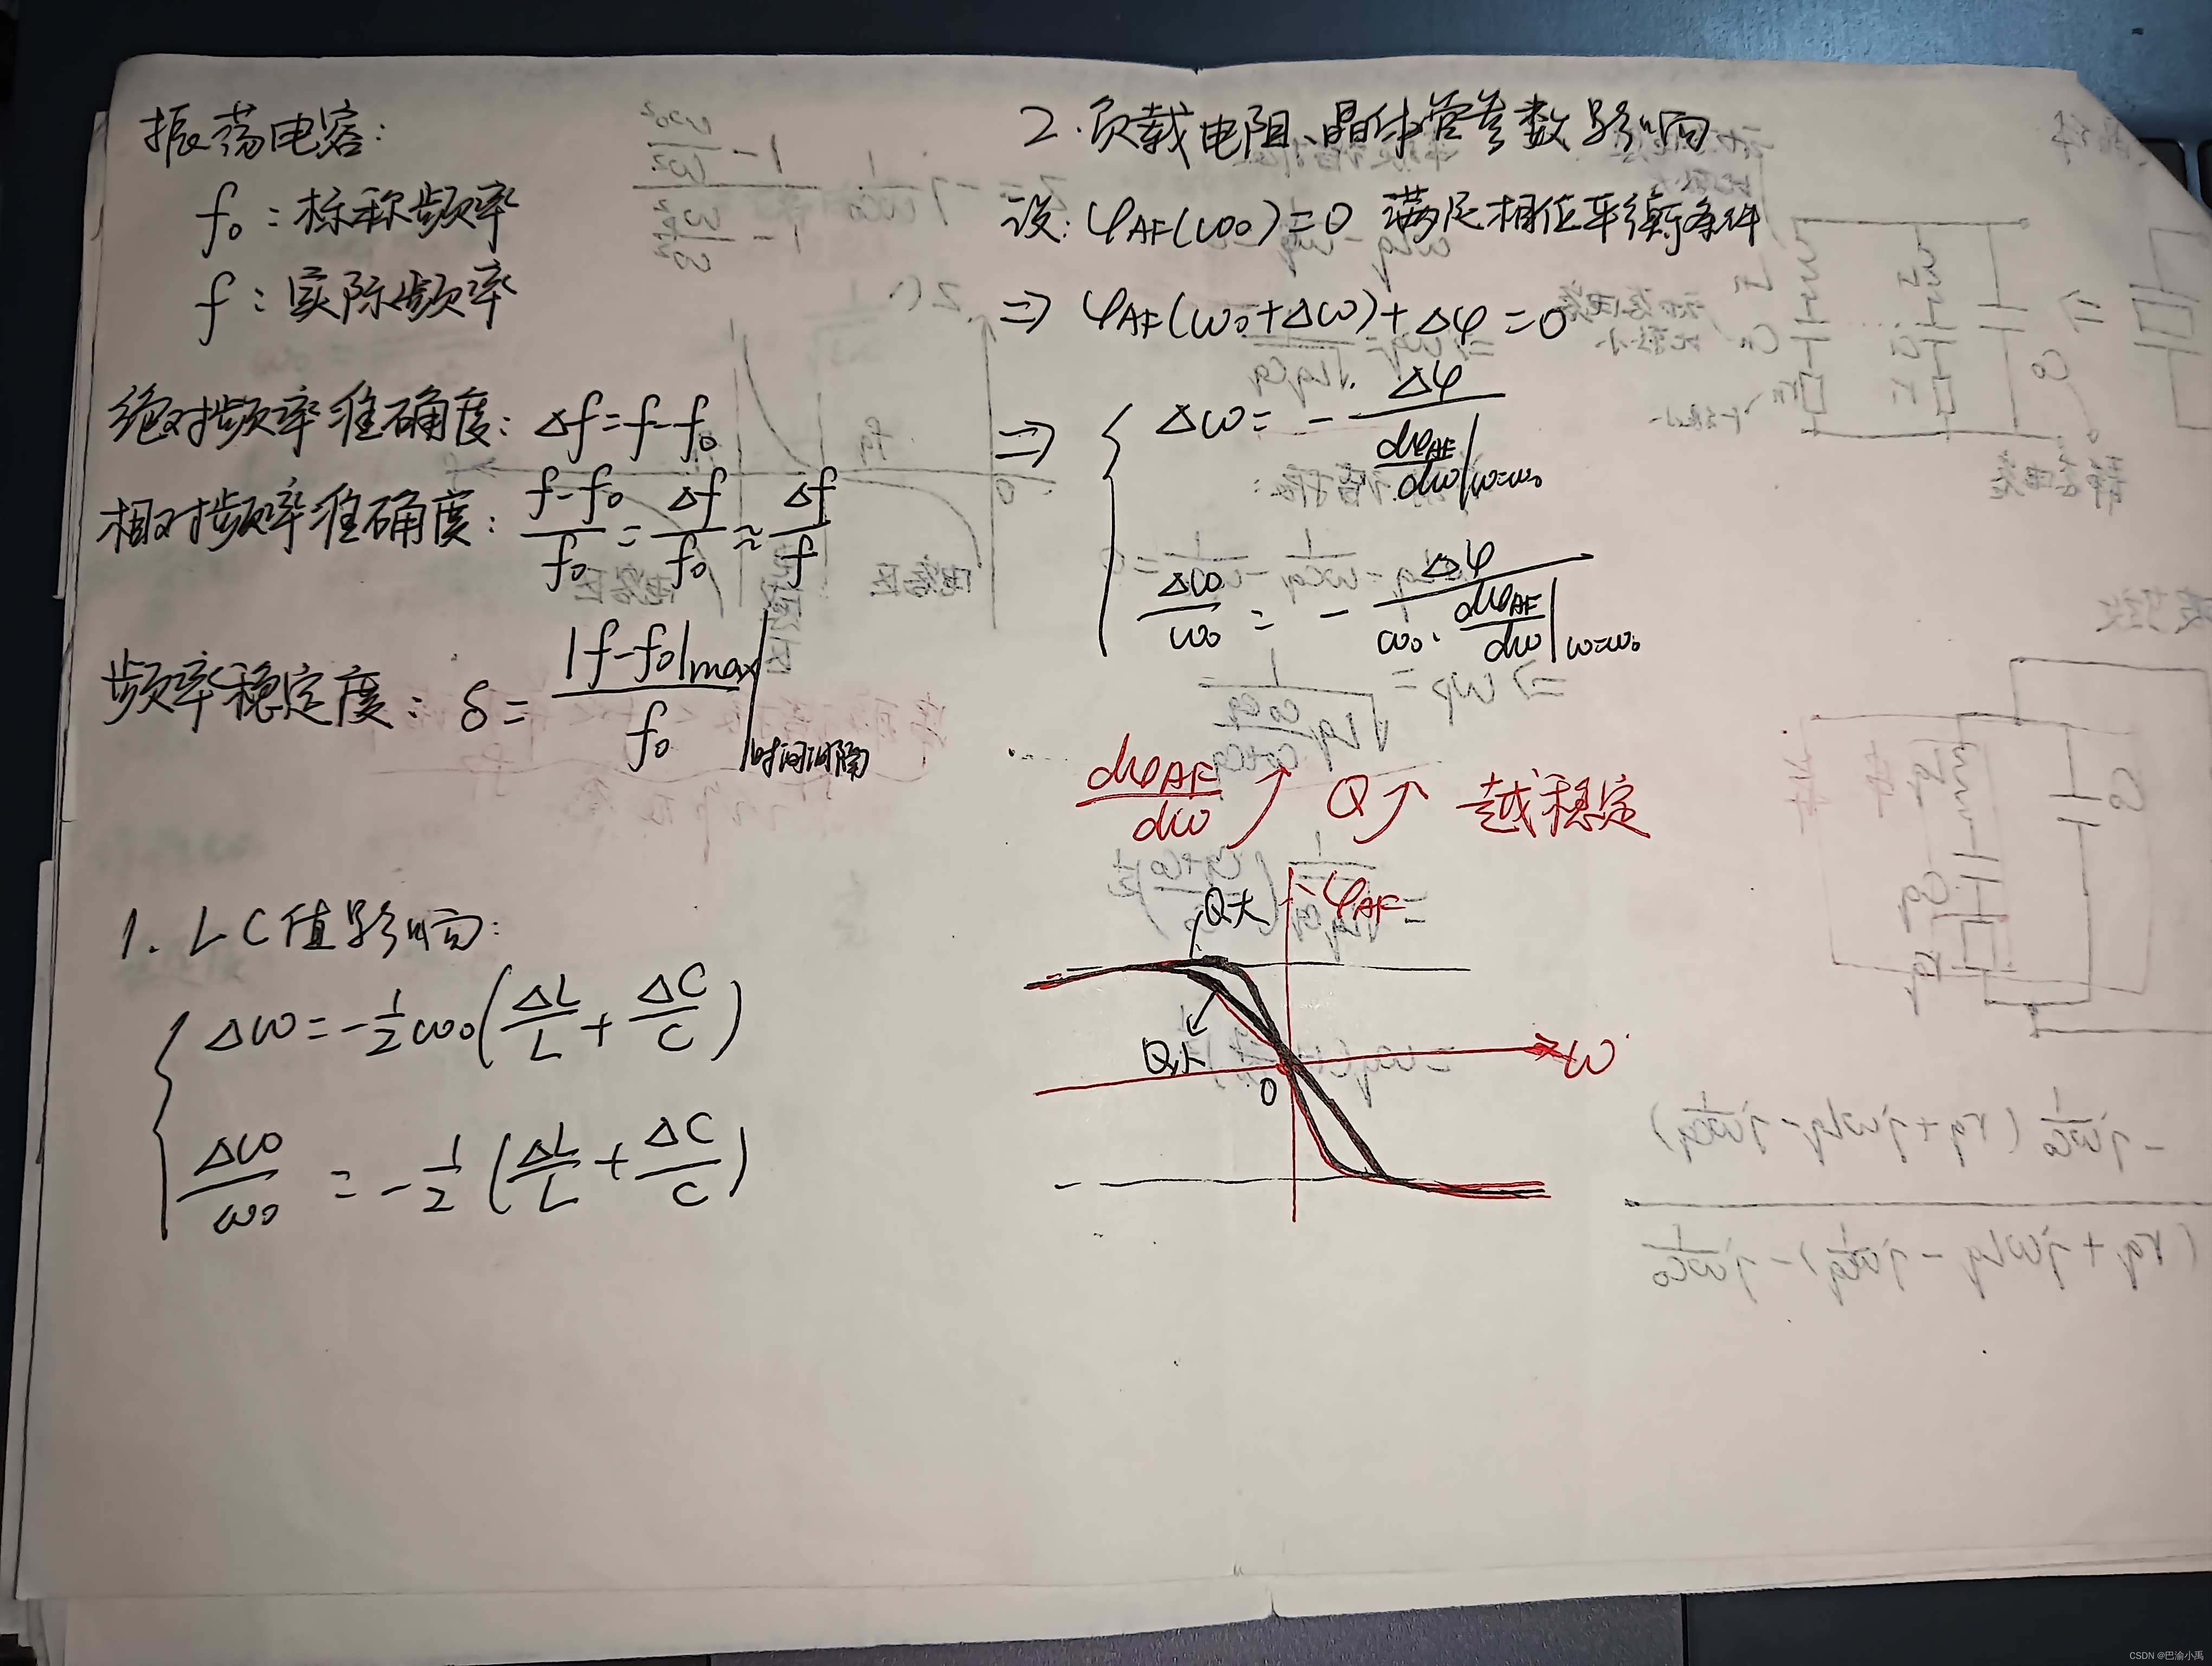 振荡电容:
f₀:标称频率
f:实际频率
绝对频率准确度: Δf=f-f₀
相对频率准确度: (f-f₀)/f₀ = Δf/f₀ ≈ Δf/f
频率稳定度: δ= |f-f₀|max/f₀ |时间间隔
1. LC值影响:
Δω=-1/2ω₀(ΔL/L+ΔC/C)
Δω/ω₀ = -1/2(ΔL/L+ΔC/C)
2.负载电阻、晶体管参数影响
设: φAF(ω₀)=0 满足相位平衡条件
⇒ φAF(ω₀+Δω)+Δφ=0
⇒ { Δω= - Δφ/(dφAF/dω|ω=ω₀)
Δω/ω₀ = - Δφ/(ω₀·dφAF/dω|ω=ω₀)
dφAF/dω ↗ Q↗ 越稳定
Q大
φAF
ω
0
CSDN @巴渝小禹